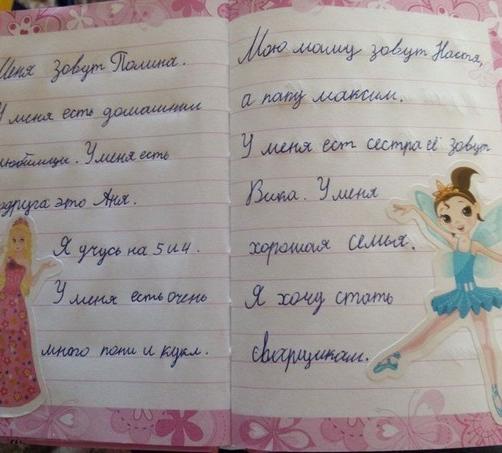 Меня зовут Полина.
У меня есть домашнии
любимци. У меня есть
подруга это Аня.
Я учусь на 5 и 4.
У меня есть очень
много пони и кукл.
Мою маму зовут Настя,
а папу максим.
У меня ест сестра её зовут
Вика. У меня
хорошая семья.
Я хочу стать
сварщикам.